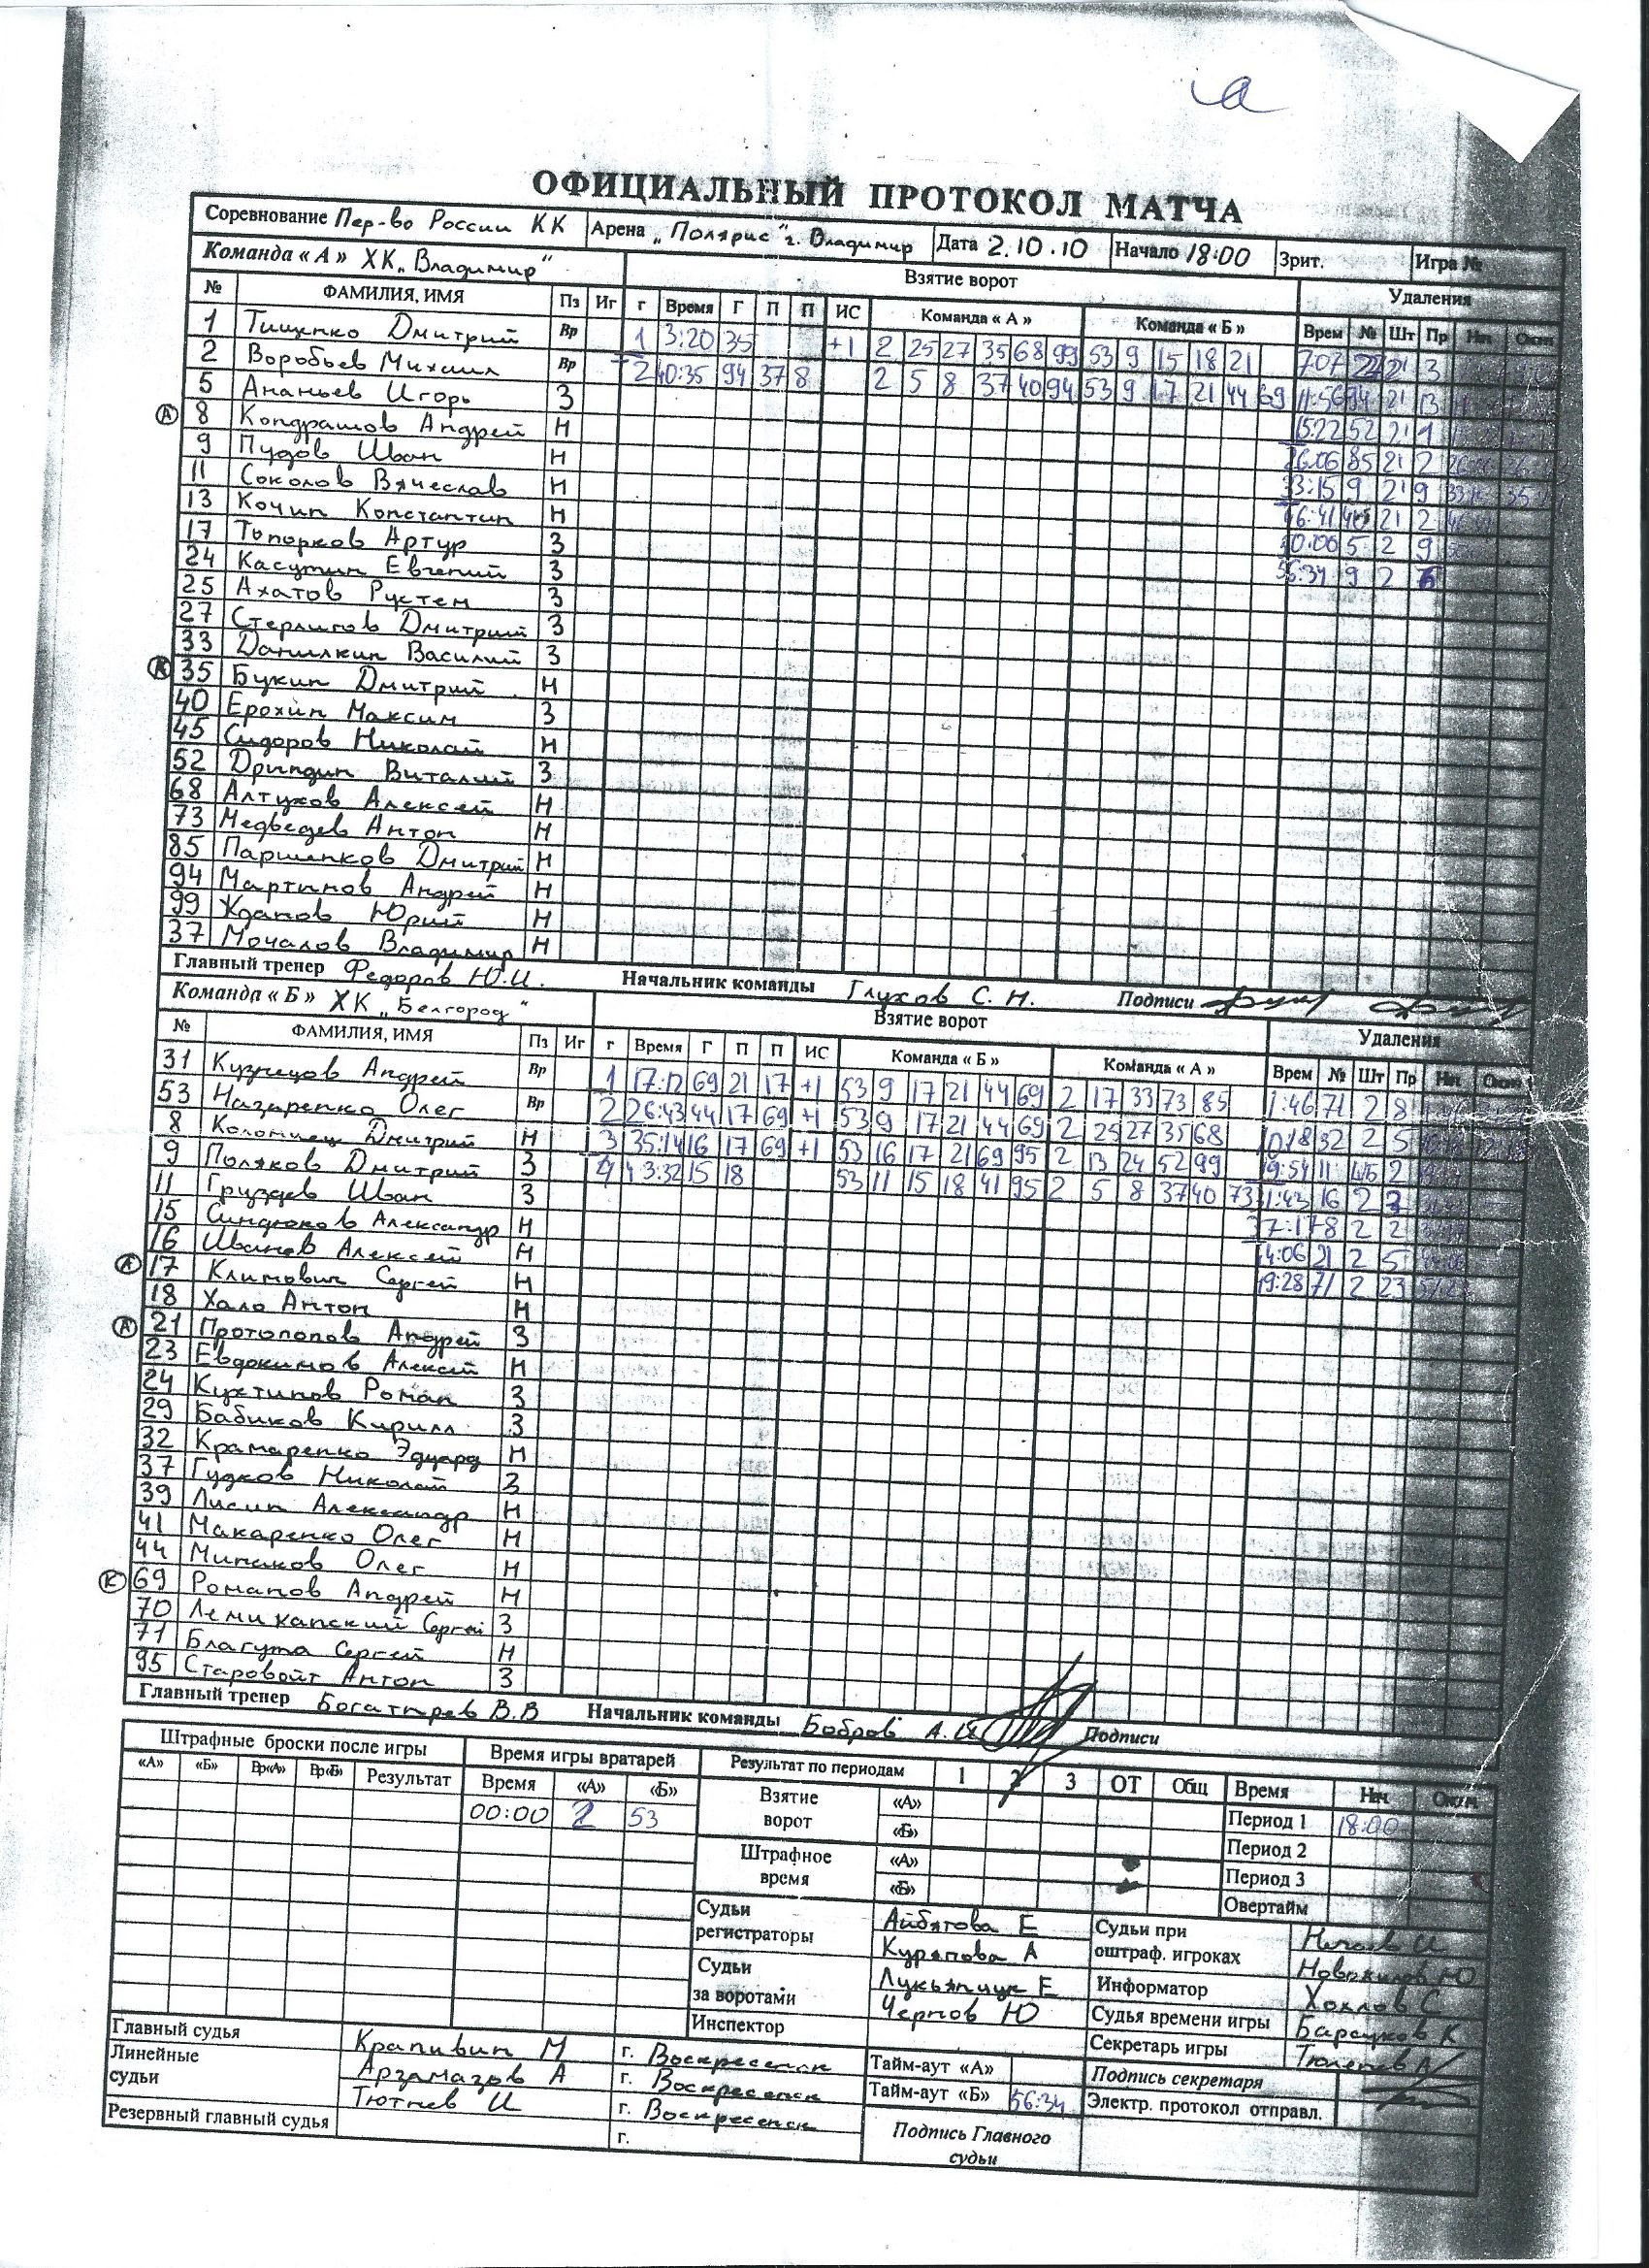 а
ОФИЦИАЛЬНЫЙ ПРОТОКОЛ МАТЧА
Соревнование Пер-во России КК Арена „Полярис" г. Владимир Дата 2.10.10 Начало 18:00 Зрит. Игра №
Команда « А » ХК „Владимир" Взятие ворот Удаления
№ ФАМИЛИЯ, ИМЯ Пз Иг г Время Г П П ИС Команда « А » Команда « Б » Врем № Шт Пр Нач Окон
1 Тищенко Дмитрий Вр 1 3:20 35 +1 2 25 27 35 68 99 53 9 15 18 21 7:07 2 3
2 Воробьев Михаил Вр 2 40:35 94 37 8 2 5 8 37 40 94 53 9 17 21 44 69 11:56 94 2 13
5 Ананьев Игорь З 15:22 52 2
А 8 Кондрашов Андрей Н 26:06 85 2 2
9 Пудов Иван Н 33:15 9 2 9
11 Соколов Вячеслав Н 46:41 2 2
13 Кочин Константин Н 50:00 5 2 9
17 Топорков Артур З 56:34 9 2
24 Касутин Евгений З
25 Ахатов Рустем З
27 Стерлигов Дмитрий З
33 Данилкин Василий З
К 35 Букин Дмитрий Н
40 Ерохин Максим З
45 Сидоров Николай Н
52 Дрындин Виталий З
68 Алтухов Алексей Н
73 Медведев Антон Н
85 Паршенков Дмитрий Н
94 Мартынов Андрей Н
99 Жданов Юрий Н
37 Мочалов Владимир Н
Главный тренер Федоров Ю.И. Начальник команды Глухов С. Н. Подписи
Команда « Б » ХК „Белгород" Взятие ворот Удаления
№ ФАМИЛИЯ, ИМЯ Пз Иг г Время Г П П ИС Команда « Б » Команда « А » Врем № Шт Пр Нач Окон
31 Кузнецов Андрей Вр 1 17:12 69 21 17 +1 53 9 17 21 44 69 2 17 33 73 85 1:46 71 2 8
53 Назаренко Олег Вр 2 26:43 44 17 69 +1 53 9 17 21 44 69 2 25 27 35 68 10:18 32 2 5
8 Коломиец Дмитрий Н 3 35:14 16 17 69 +1 53 16 17 21 69 95 2 13 24 52 99 19:54 11 2
9 Поляков Дмитрий З 4 43:32 15 18 53 11 15 18 41 95 2 5 8 37 40 73 16 2
11 Груздев Иван З 37:17 8 2 2
15 Синдюков Александр Н 21 2 5
16 Иванов Алексей Н 71 2 23
А 17 Климович Сергей Н
18 Хало Антон Н
А 21 Протопопов Андрей З
23 Евдокимов Алексей Н
24 Кухтинов Роман З
29 Бабиков Кирилл З
32 Крамаренко Эдуард Н
37 Гудков Николай З
39 Лисин Александр Н
41 Макаренко Олег Н
44 Минаков Олег Н
К 69 Романов Андрей Н
70 Лемиханский Сергей З
71 Благута Сергей Н
95 Старовойт Антон З
Главный тренер Богатырев В.В Начальник команды Бобров А.И Подписи
Штрафные броски после игры Время игры вратарей Результат по периодам 1 2 3 ОТ Общ Время Нач. Оконч.
«А» «Б» Вр«А» Вр«Б» Результат Время «А» «Б» Взятие ворот «А» Период 1 18:00
00:00 2 53 «Б» Период 2
Штрафное время «А» Период 3
«Б» Овертайм
Судьи регистраторы Айбятова Е Судьи при оштраф. игроках
Курапова А Новожилов Ю
Судьи за воротами Лукьянчук Е Информатор Хохлов С
Чернов Ю Судья времени игры Барсуков К
Инспектор Секретарь игры
Главный судья Крапивин М г. Воскресенск Тайм-аут «А» Подпись секретаря
Линейные судьи Арзамазов А г. Воскресенск Тайм-аут «Б» 56:34 Электр. протокол отправл.
Тютнев И г. Воскресенск Подпись Главного судьи
Резервный главный судья г.